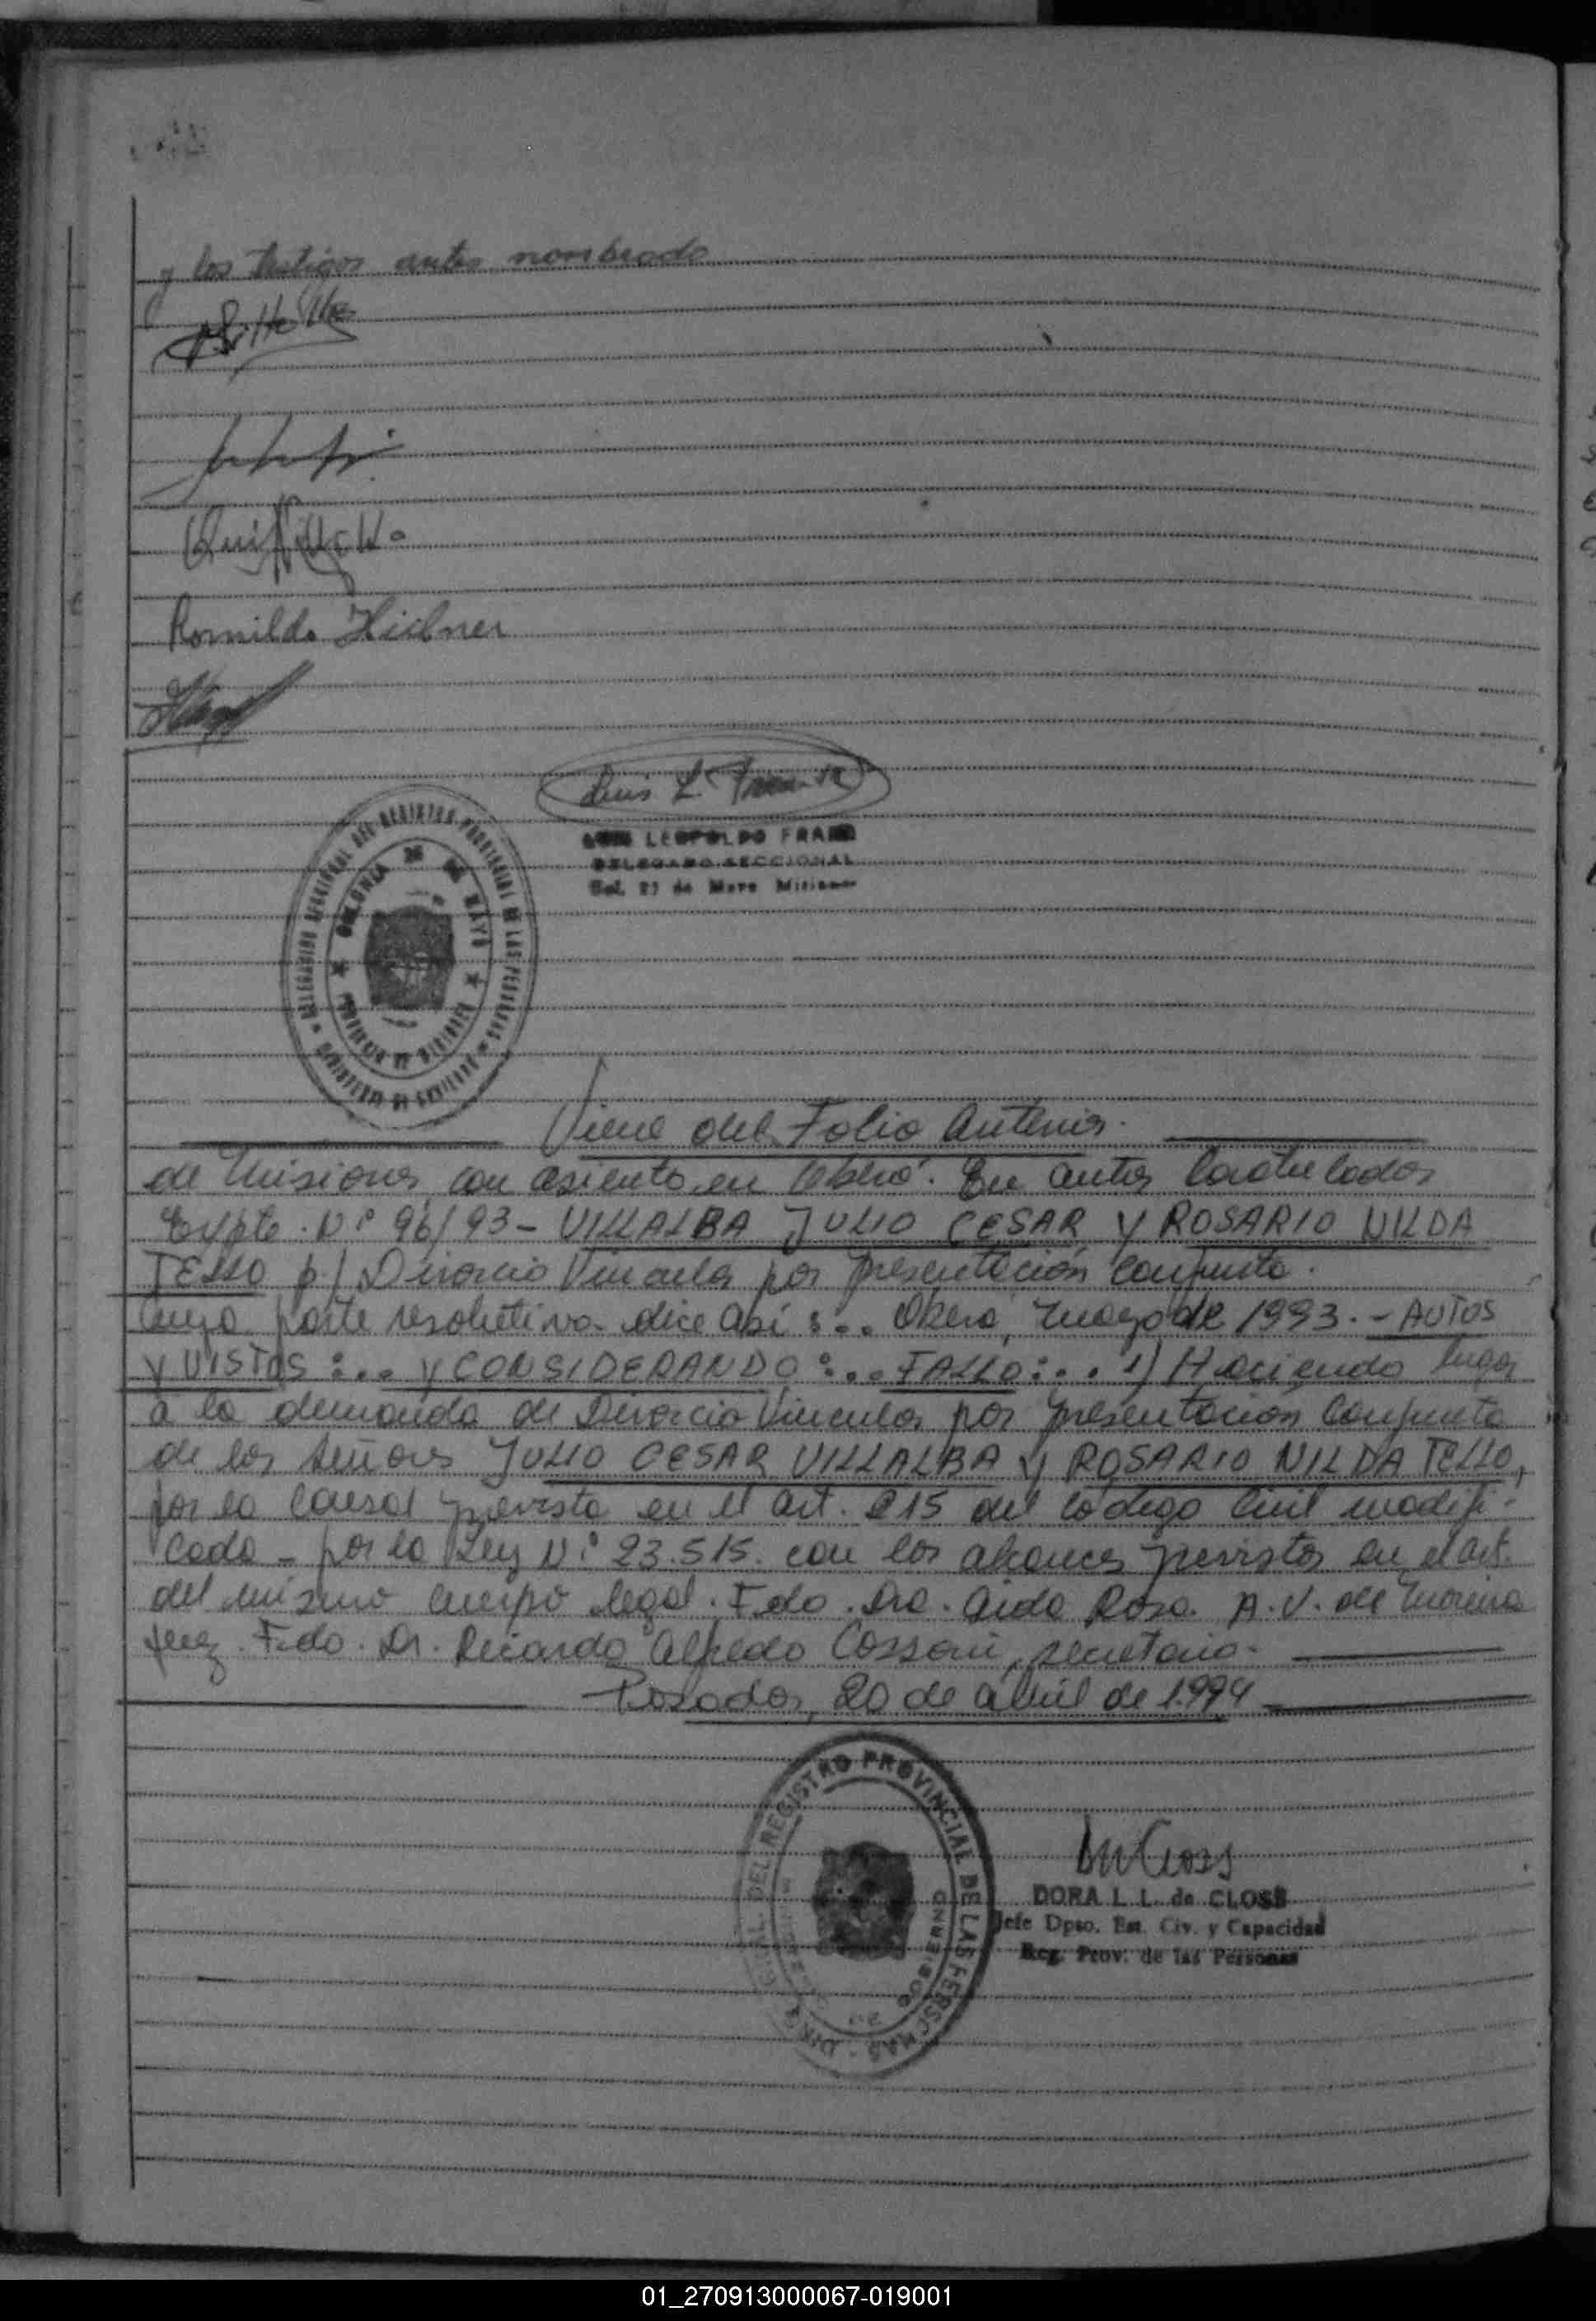 y los testigos antes nombrado
Romildo Hübner
Luis L. Franz
LUIS LEOPOLDO FRANZ
DELEGADO SECCIONAL
Col. 25 de Mayo Misiones
DELEGACION SECCIONAL DEL REGISTRO PROVINCIAL DE LAS PERSONAS
COLONIA 25 DE MAYO
PROVINCIA DE MISIONES
Viene del Folio Anterior.
de Misiones, con asiento en Oberá. En autos Caratulados
Expte. N° 96/93 - VILLALBA JULIO CESAR Y ROSARIO NILDA
TELLO p./ Divorcio Vincular por presentación Conjunta.
Cuya parte resolutiva dice así :.. Oberá, mayo de 1993. - AUTOS
Y VISTOS :... Y CONSIDERANDO :... FALLO :... 1) Haciendo lugar
a la demanda de Divorcio Vincular por presentación Conjunta
de los Señores JULIO CESAR VILLALBA y ROSARIO NILDA TELLO,
por la Causal prevista en el art. 215 del Código Civil modifi-
cado - por la Ley N° 23.515. con los alcances previstos en el art.
del mismo Cuerpo legal. Fdo. Dra. Aida Rosa. A. V. de Moreira
Juez. Fdo. Dr. Ricardo Alfredo Cossoni, secretario.
Posadas, 20 de abril de 1.994
GRAL. DEL REGISTRO PROVINCIAL DE LAS PERSONAS - DIR
GOBIERNO
DORA L. L. de CLOSS
Jefe Dpto. Est. Civ. y Capacidad
Reg. Prov. de las Personas
01_270913000067-019001